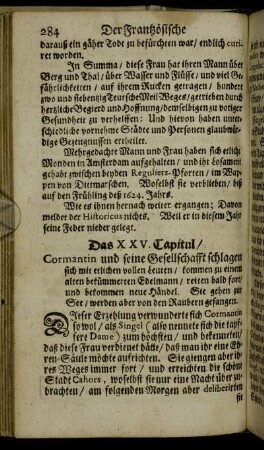 284 Der Frantzösische
darauß ein gäher Todt zu befürchten war / endlich curi-
ret worden.
In Summa / diese Frau hat ihren Mann über
Berg und Thal / über Wasser und Flüsse / und viel Ge-
fährlichkeiten / auf ihrem Rucken getragen / hundert
zwo und siebentzig Teutsche Meil Weges / getrieben durch
hertzliche Begierd und Hoffnung / demselbigen zu voriger
Gesundheit zu verhelffen: Und hiervon haben unter-
schiedliche vornehme Städte und Personen glaubwür-
dige Gezeugnussen ertheilet.
Mehrgedachte Mann und Frau haben sich etliche
Monden in Amsterdam aufgehalten / und ihr Losament
gehabt zwischen beyden Reguliers-Pforten / im Wap-
pen von Ditmarschen. Woselbst sie verblieben / biß
auf den Frühling deß 1624. Jahrs.
Wie es ihnen hernach weiter ergangen; Davon
melder der Historicus nichts. Weil er in diesem Jahr
seine Feder nieder gelegt.
Das XXV. Capitul /
Cormantin und seine Gesellschafft schlagen
sich mit etlichen vollen Leuten / kommen zu einem
alten bekümmerten Edelmann / reiten bald fort /
und bekommen neue Händel. Sie gehen zur
See / werden aber von den Raubern gefangen.
Dieser Erzehlung verwunderte sich Cormantin
so wol / als Singel (also nennete sich die tapf-
fere Dame) zum höchsten / und bekenneten /
daß diese Frau verdienet hätte / daß man ihr eine Eh-
ren-Säule möchte aufrichten. Sie giengen aber ih-
res Weges immer fort / und erreichten die schöne
Stadt Cahors, woselbst sie nur eine Nacht über zu-
brachten / am folgenden Morgen aber deliberirten
sie